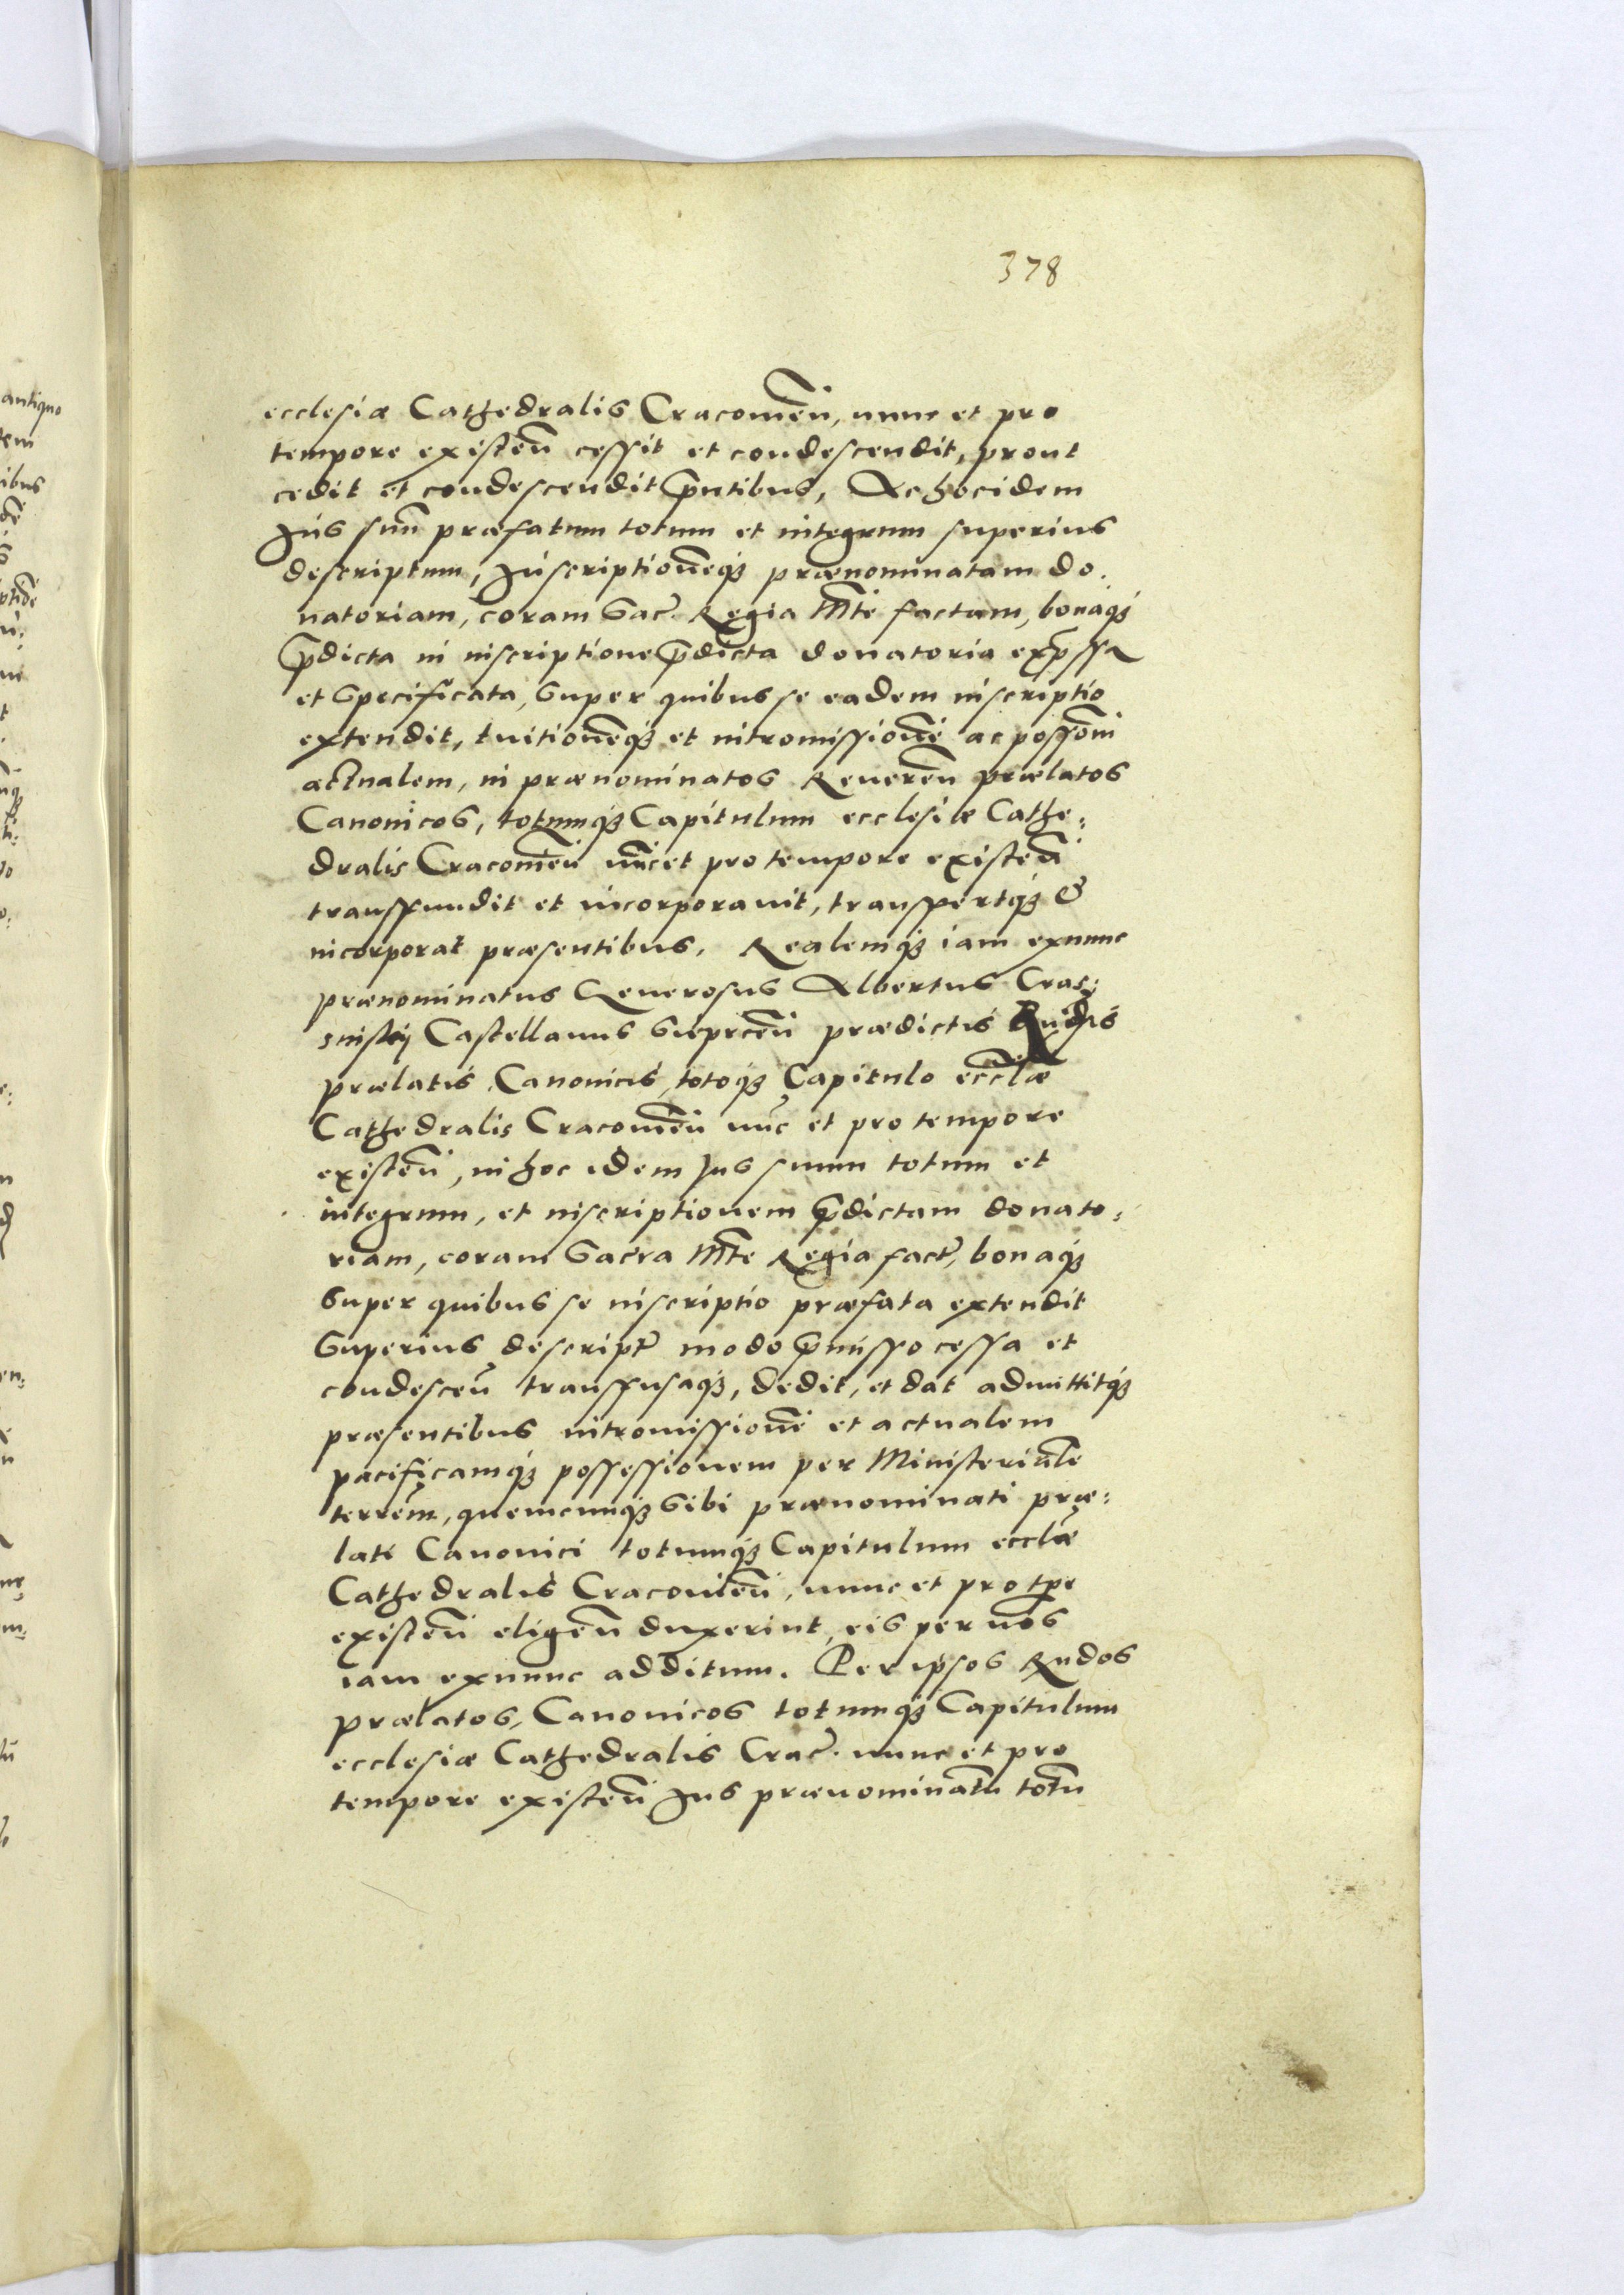 378
ecclesiæ Cathedralis Cracovieñ, nunc et pro
tempore existeñ cessit et condescendit, prout
cedit et condescendit p̄ntibus, Ac hoc idem
Jus suũ præfatum totum et integrum superius
descriptum, Inscriptionẽq3 prænominatam do.
natoriam, coram Sacr̃. Regia Mt̃e factam, bonaq3
p̄dicta in inscriptione p̄dicta donatoria exp̄ssa
et Specificata, Super quibus se eadem inscriptio
extendit, tuitionẽq3 et intromissionẽ ac possoñi
actualem, in prænominatos Reuereñ prælatos
Canonicos, totumq3 Capitulum ecclesiæ Cathe:
dralis Cracovieñ nũc et pro tempore existeñ
transfundit et incorporauit, transfertq3 &
incorporat præsentibus. Realemq3 iam exnunc
prænominatus Generosus Albertus Cras:
inskij Castellanus Sieprceñ prædictis Rñdis
prælatis Canonicis, totoq3 Capitulo eccl̃æ
Cathedralis Cracovieñ nũc et pro tempore
existeñ, in hoc idem Jus suum totum et
integrum, et inscriptionem p̄dictam donato:
riam, coram Sacra Mt̃e Regia fact̃, bonaq3
Super quibus se inscriptio præfata extendit
Superius descript̃ modo p̄misso cessa et
condesceñ transfusaq3, dedit, et dat admittitq3
præsentibus intromissionẽ et actualem
pacificamq3 possessionem per Ministerialẽ
terreñm, quemcunq3 Sibi prænominati præ:
lati Canonici totumq3 Capitulum eccl̃æ
Cathedralis Cracovieñ, nunc et pro tp̄re
existeñ eligeñ duxerint, eis per nos
iam exnunc additum. Per ipsos Rndos
prælatos, Canonicos totumq3 Capitulum
ecclesiæ Cathedralis Crac̃. nunc et pro
tempore existeñ Jus prænominatũ totũ